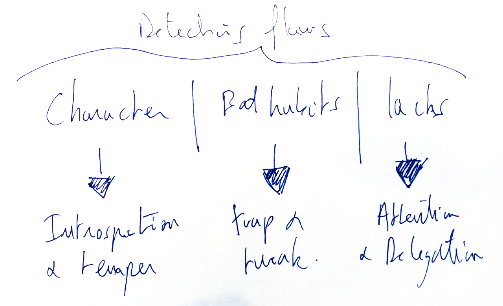 Detecting flaws
Character | Bad habits | lacks
Introspection
& temper
trap &
tweak.
Attention
& Delegation